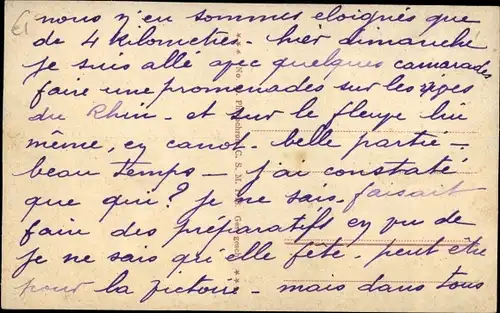 nous n'en sommes eloignés que
de 4 kilometres - hier dimanche
je suis allé avec quelques camarades
faire une promenades sur les rives
du Rhin - et sur le fleuve lui
même, en canot - belle partie -
beau temps - j'ai constaté
que qui? je ne sais - faisait
faire des préparatifs en vu de
je ne sais qu'elle fête - peut être
pour la victoire - mais dans tous